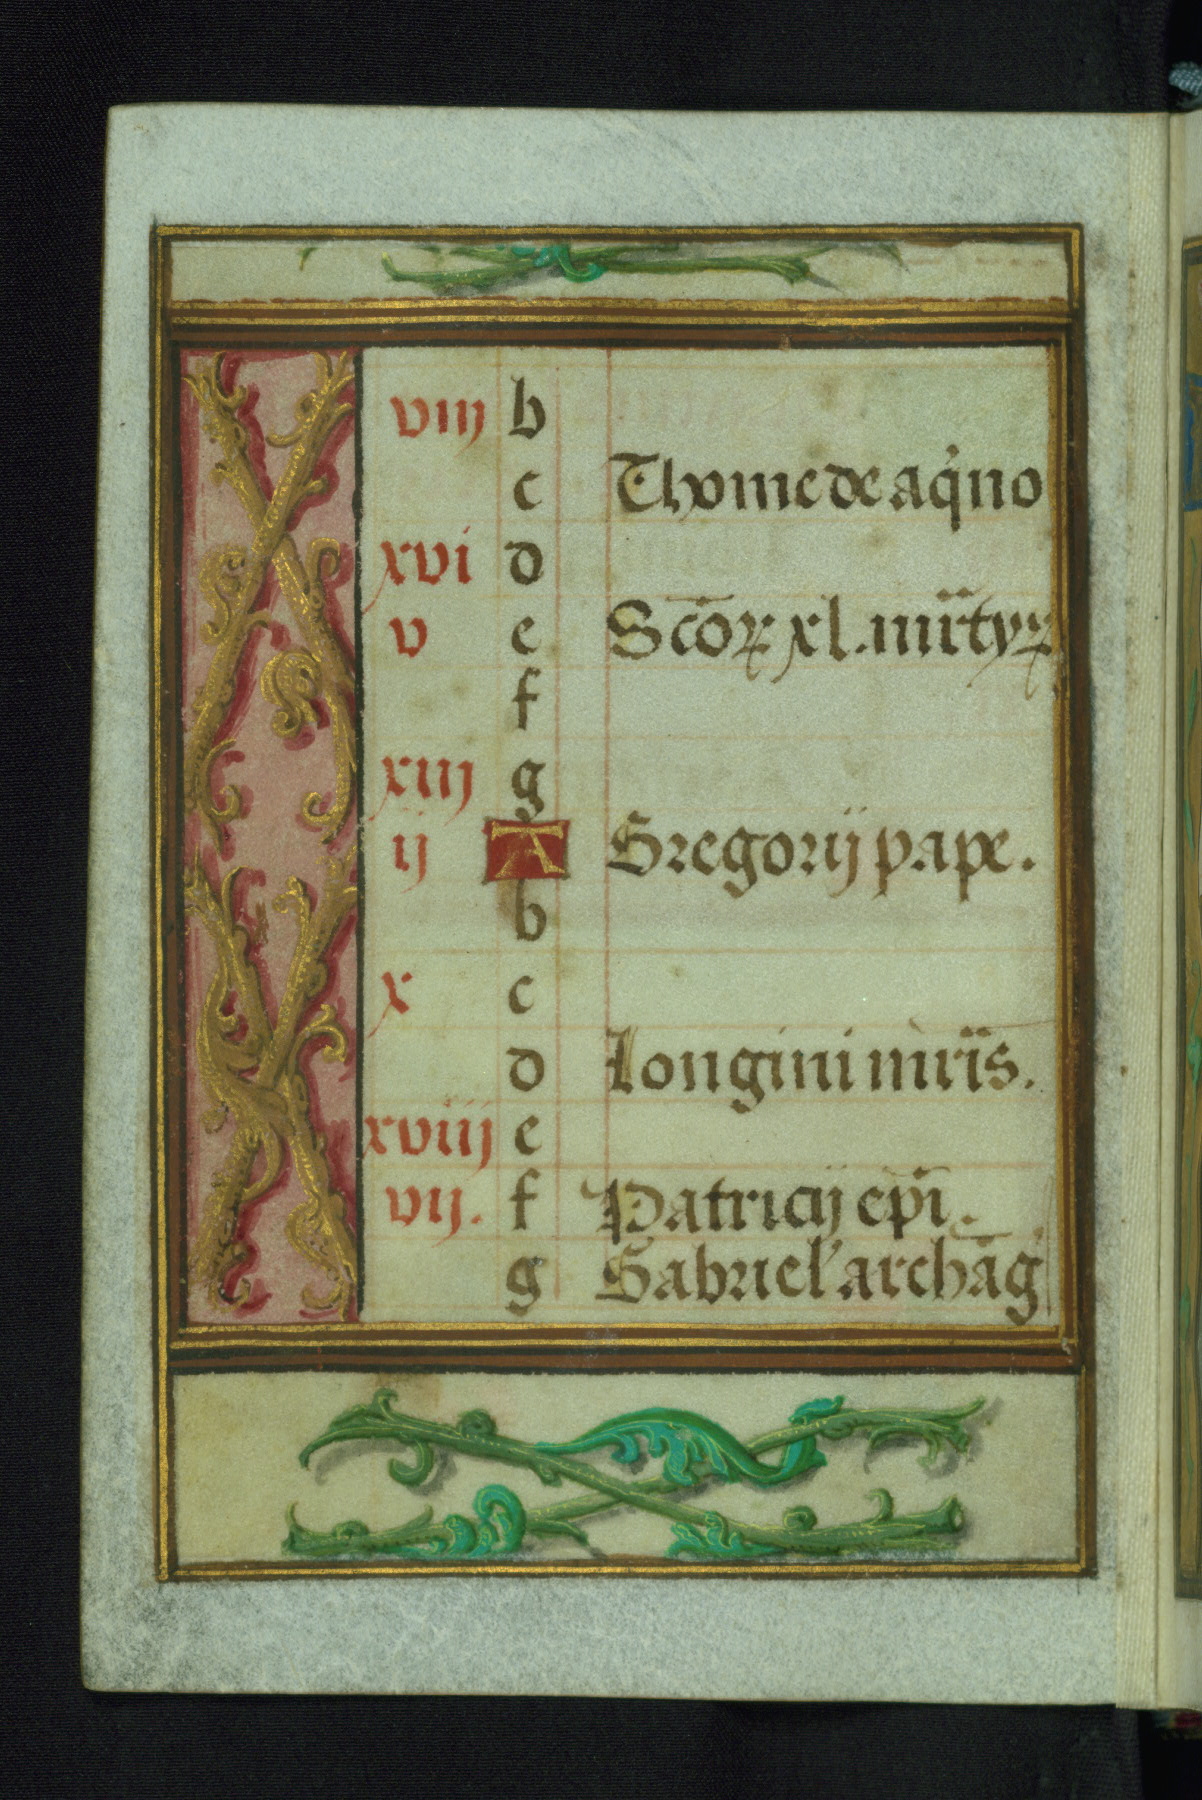 viij b
c Thome de aq̇no
xvi d
v e Sctōꝝ xl. mr̄tyꝝ
f
xiij g
ij A Gregorij pape.
b
x c
d Longini mr̄is.
xviij e
vij. f Patricij ep̄i.
g Gabriel' archāg'